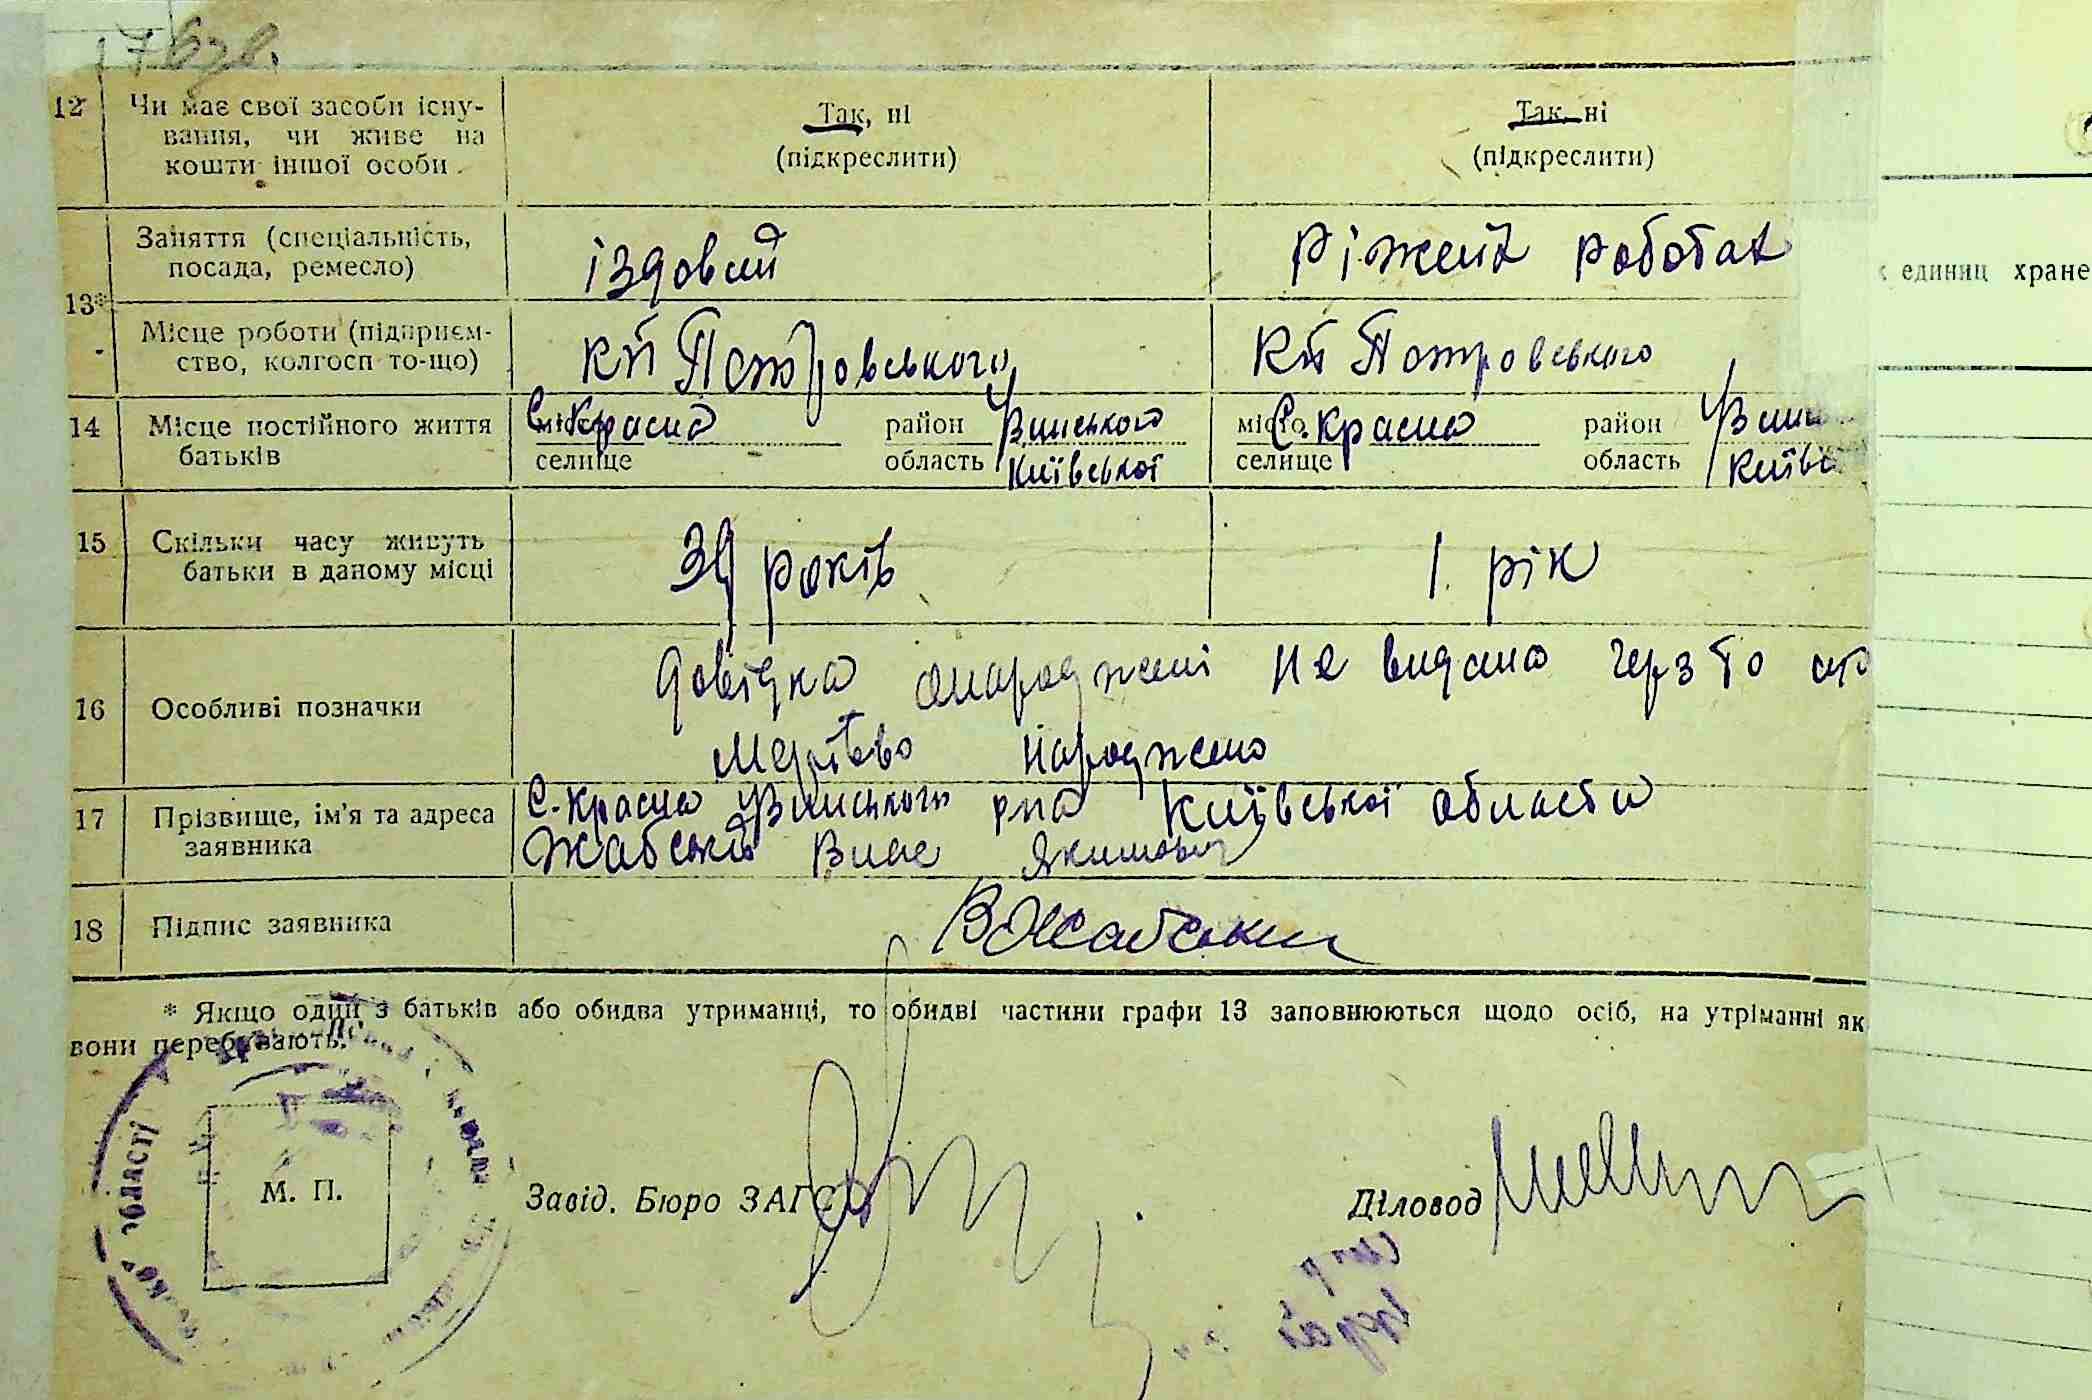 12 Чи має свої засоби існу-
вання, чи живе на
кошти іншої особи.
Так, ні
(підкреслити)
Так, ні
(підкреслити)
13*
Заняття (спеціальність,
посада, ремесло)
їздовий
Ріжних роботах
Місце роботи (підприєм-
ство, колгосп то-що)
Кп Петровського
Кп Петровського
14 Місце постійного життя
батьків
місто С. Красна район
селище область Київської
місто С. Красна район
селище область
15 Скільки часу живуть
батьки в даному місці
39 років
1 рік
16 Особливі позначки
Довідка не видана через то що
мертво народжено
17 Прізвище, ім'я та адреса
заявника
С. Красна р-на Київської области
Жабський Влас Якимович
18 Підпис заявника
В Жабський
* Якщо один з батьків або обидва утриманці, то обидві частини графи 13 заповнюються щодо осіб, на утріманні як
вони перебувають.
області
М. П.
Завід. Бюро ЗАГС
Діловод
единиц хране